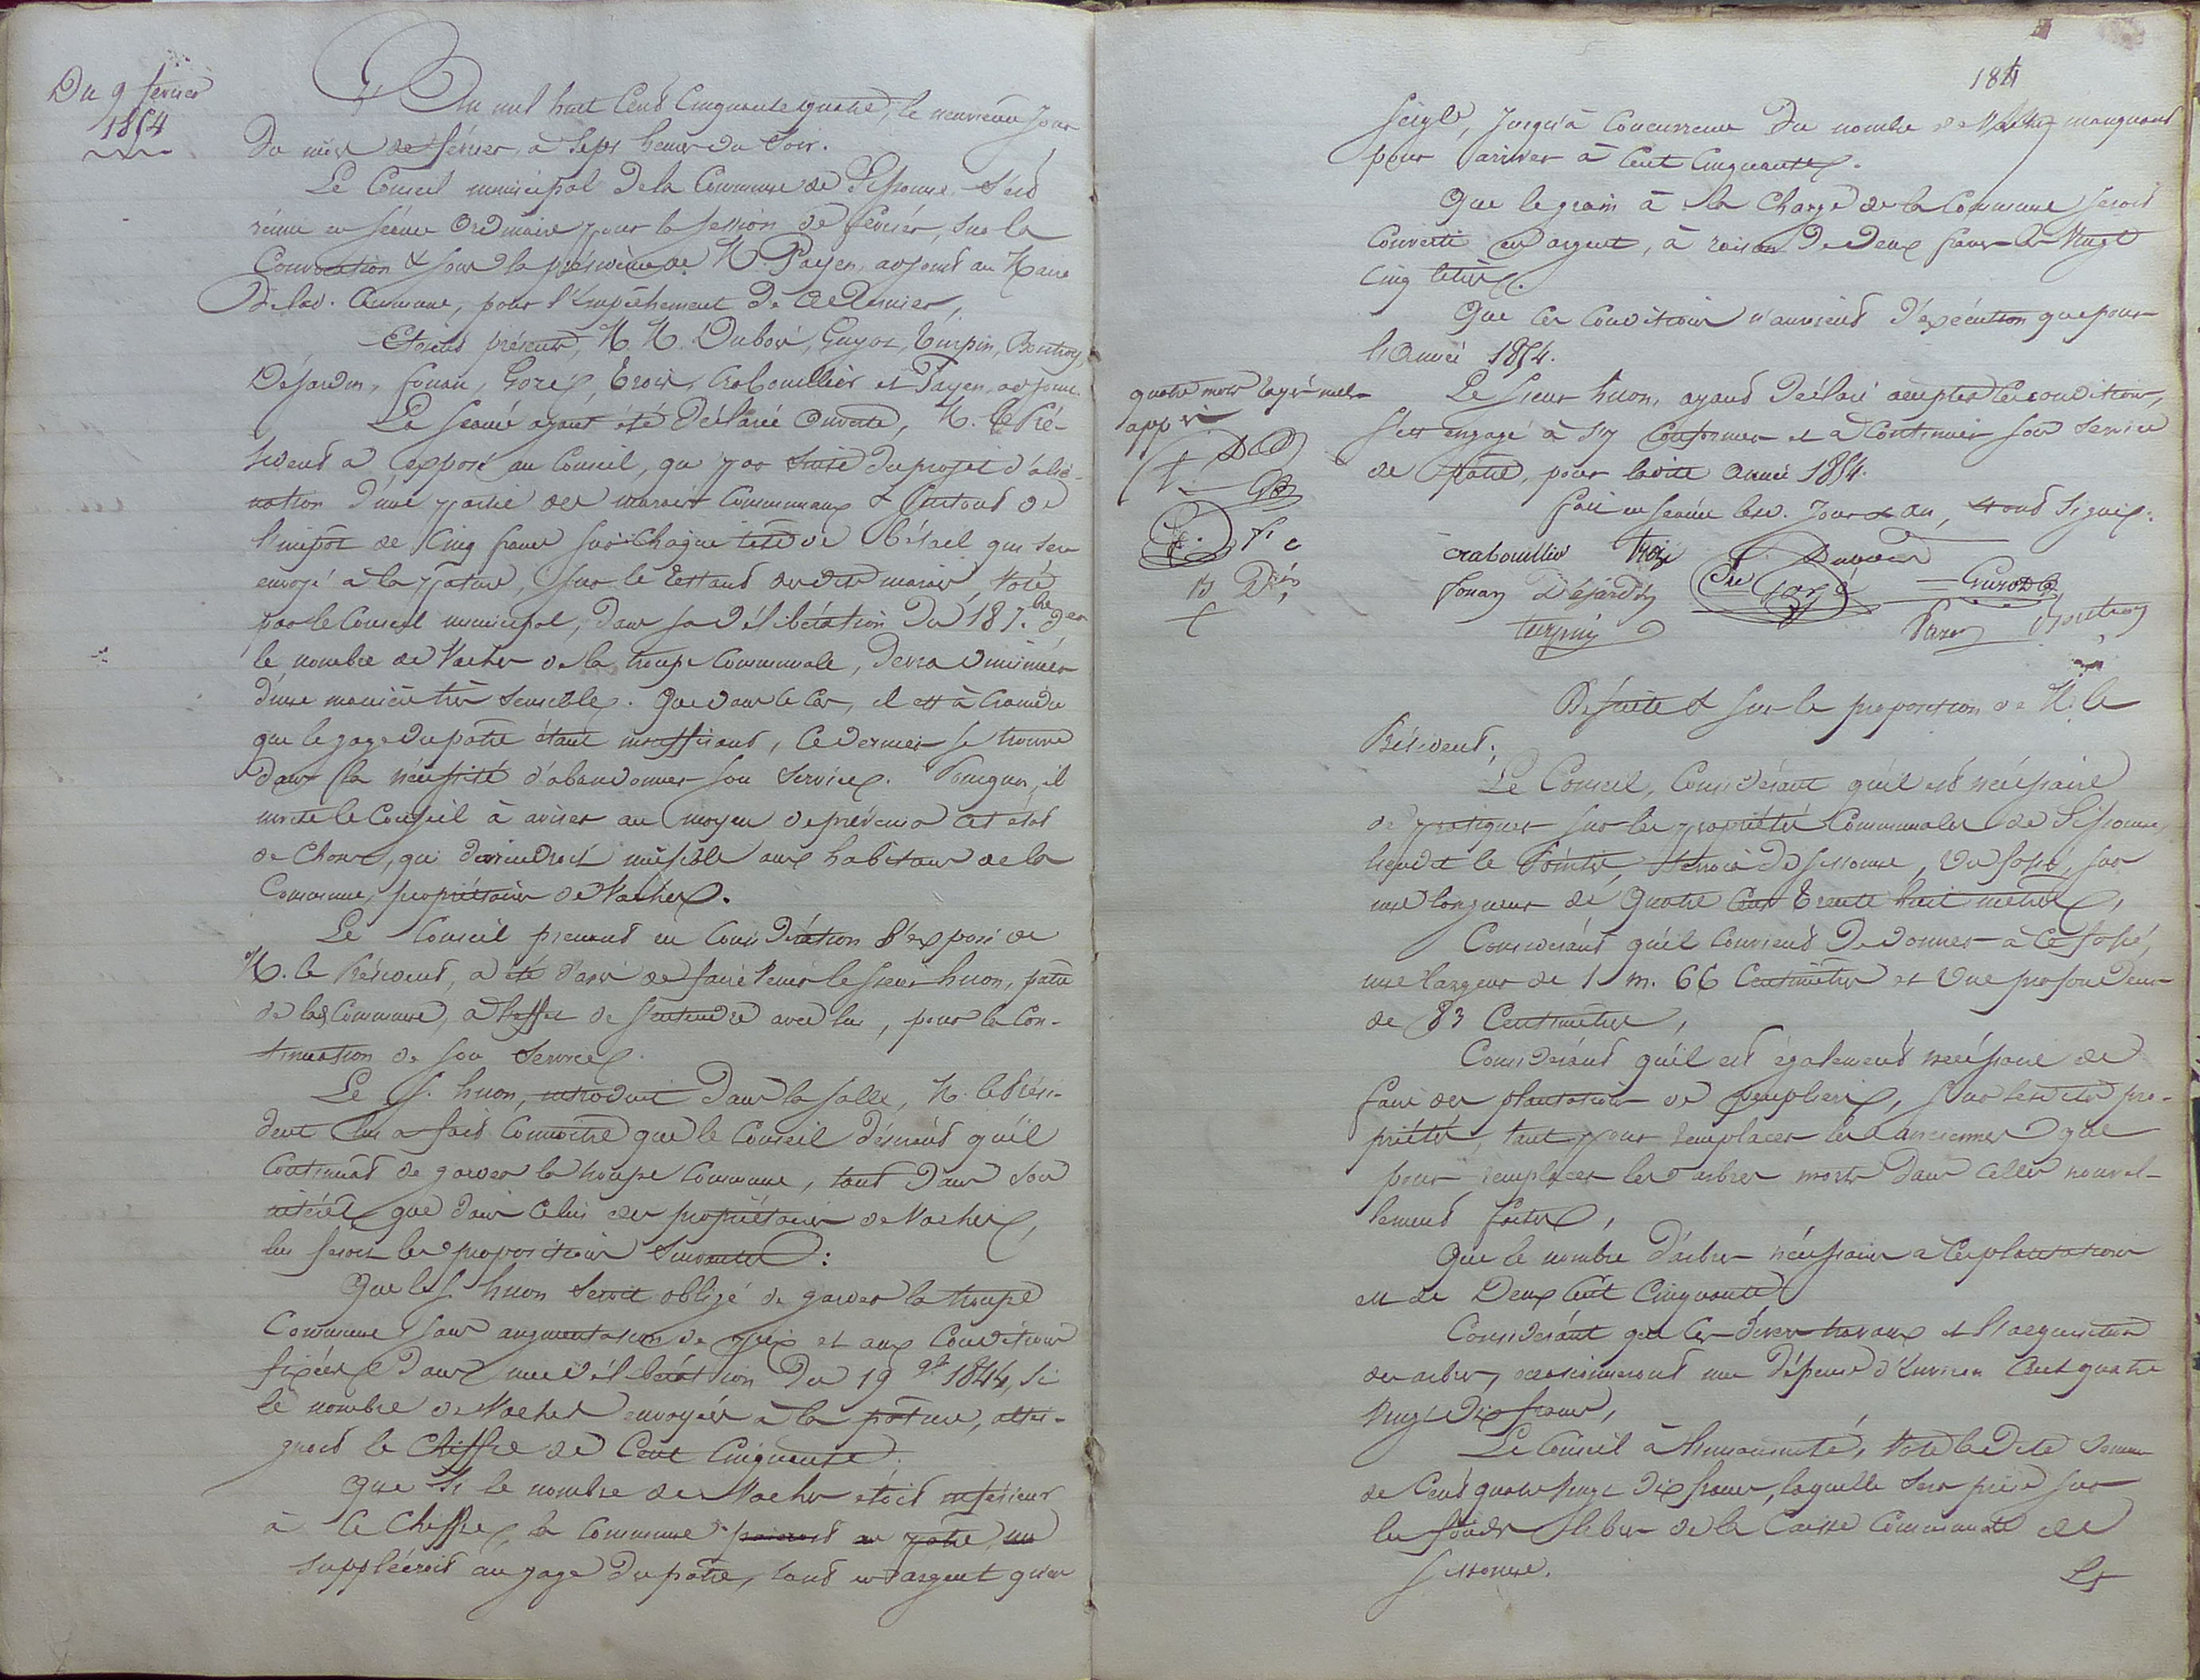 Du 9 février
1854
L'An mil huit Cent Cinquante quatre, le neuvieme Jour
du mois de février, à Sept heures du Soir.
Le Conseil municipal de la Commune de Sissonne s'est
réuni en séance Ordinaire pour la session de février, sur la
Convocation & sous la présidence de M. Payen, adjoint au Maire
De lad. Commune, pour l'Empêchement de ce Dernier,
Etoient présents, M M. Dubois, Guyot, Turpin, Boutroy,
Déjardin, fouan, Gorex, Crabouillier et Payen, adjoint.
La Séance ayant été Déclarée Ouverte, M. le Pré-
sident a exposé au Conseil, que par suite du projet d'alié-
nation d'une partie des marais Communaux & surtout de
l'impôt de Cinq francs sur Chaque tête de Bétail qui sera
envoyé à la pature, sur le restant desdits marais, Voté
par le Conseil municipal, dans sa délibération du 18 7.bre der
le nombre de Vaches de la troupe Communale, devra diminuer
d'une manière très sensible. Que dans le Cas, il est à Craindre
que le gage du patre étant insuffisant, ce dernier se trouve
dans la nécessité d'abandonner son Service. Pourquoi, il
invite le Conseil à aviser au moyen de prévenir cet état
de Chose, qui deviendroit nuisible aux habitans de la
Commune, propriétaires de Vaches.
Le Conseil prenant en Considération l'exposé de
M. le Président, a été d'avis de faire venir le sieur huon, patre
de la Commune, à l'effet de s'entendre avec lui, pour la Con-
tinuation de son Service.
Le S. huon, introduit dans la salle, M. le Prési-
dent lui a fait Connoitre que le Conseil désirant qu'il
Continuât de garder la troupe Commune, tant dans son
intérêt que dans celui des propriétaires de Vaches,
lui fesoit les propositions Suivantes :
Que le S. huon Seroit obligé de garder la troupe
Commune sans augmentation de prix et aux Conditions
fixées dans une délibération du 19 1844, Si
le nombre de Vaches envoyées à la pature, attei-
gnoit le Chiffre de Cent Cinquante.
Que Si le nombre des Vaches étoit inférieur
à ce Chiffre, la Commune paieroit au patre un
suppléeroit au gage du patre, tant en argent qu'en
184
seigle, Jusqu'à Concurrence du nombre de Vaches manquant
pour arriver à Cent Cinquante.
Que le grain à la Charge de la Commune seroit
Converti en argent, à raison de Deux francs les Vingt
Cinq litres.
Que ces Conditions n'auroient d'exécution que pour
l'Année 1854.
Le sieur huon, ayant Déclaré accepter les conditions,
s'est engagé à s'y Conformer et à Continuer son Service
de patre, pour ladite Année 1854.
fait en séance lesd. Jour & an, & ont Signé.
quatre mots rayés nuls
app vé
DD
GB
B D
Crabouillier Dubois
fouan Déjardin Gorex Guyot
turpin Payen Boutroy
De suite & sur la proposition de M. le
Président;
Le Conseil, Considérant qu'il est nécessaire
de pratiquer sur les propriétés Communales de Sissonne,
lieudit le , terroir de Sissonne, Un fossé, sur
une longueur de Quatre Cent Trente huit mètres,
Considérant qu'il Convient De donner à ce fossé,
une largeur de 1 m. 66 Centimètres et Une profondeur
de 83 Centimètres,
Considérant qu'il est également nécessaire de
faire des plantations de peupliers, sur lesdites pro-
priétés, tant pour remplacer les anciennes que
pour remplacer les arbres morts dans celles nouvel-
lement faites,
Que le nombre d'arbres nécessaires à ces plantations
est de Deux Cent Cinquante
Considérant que ces divers travaux et l'acquisition
des arbres, occasionneront une dépense d'Environ Cent quatre
Vingt dix francs,
Le Conseil à l'unanimité, Vote la dite Somme
de Cent quatre Vingt Dix francs, laquelle sera prise sur
les fonds libres de la Caisse Communale de
Sissonne.
Le